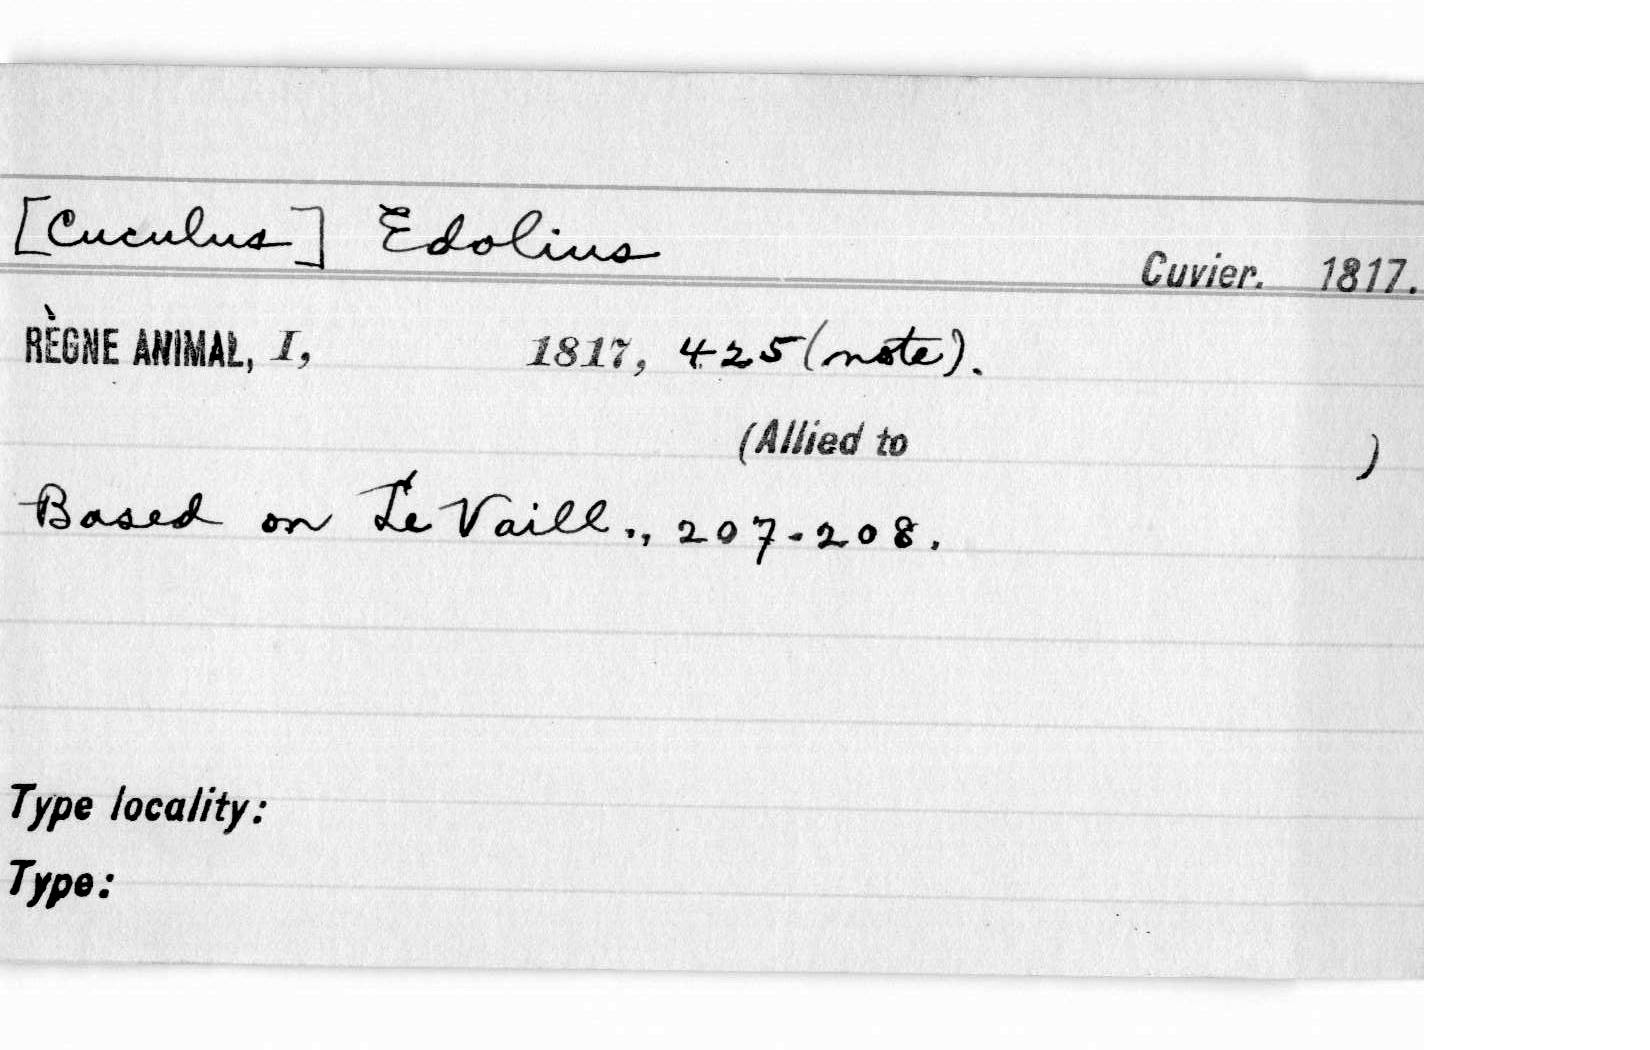 [Cuculus] Edolius
Cuvier. 1817.
RÈGNE ANIMAL, I, 1817, 425 (note).
(Allied to )
Based on Le Vaill., 207-208.
Type locality:
Type: